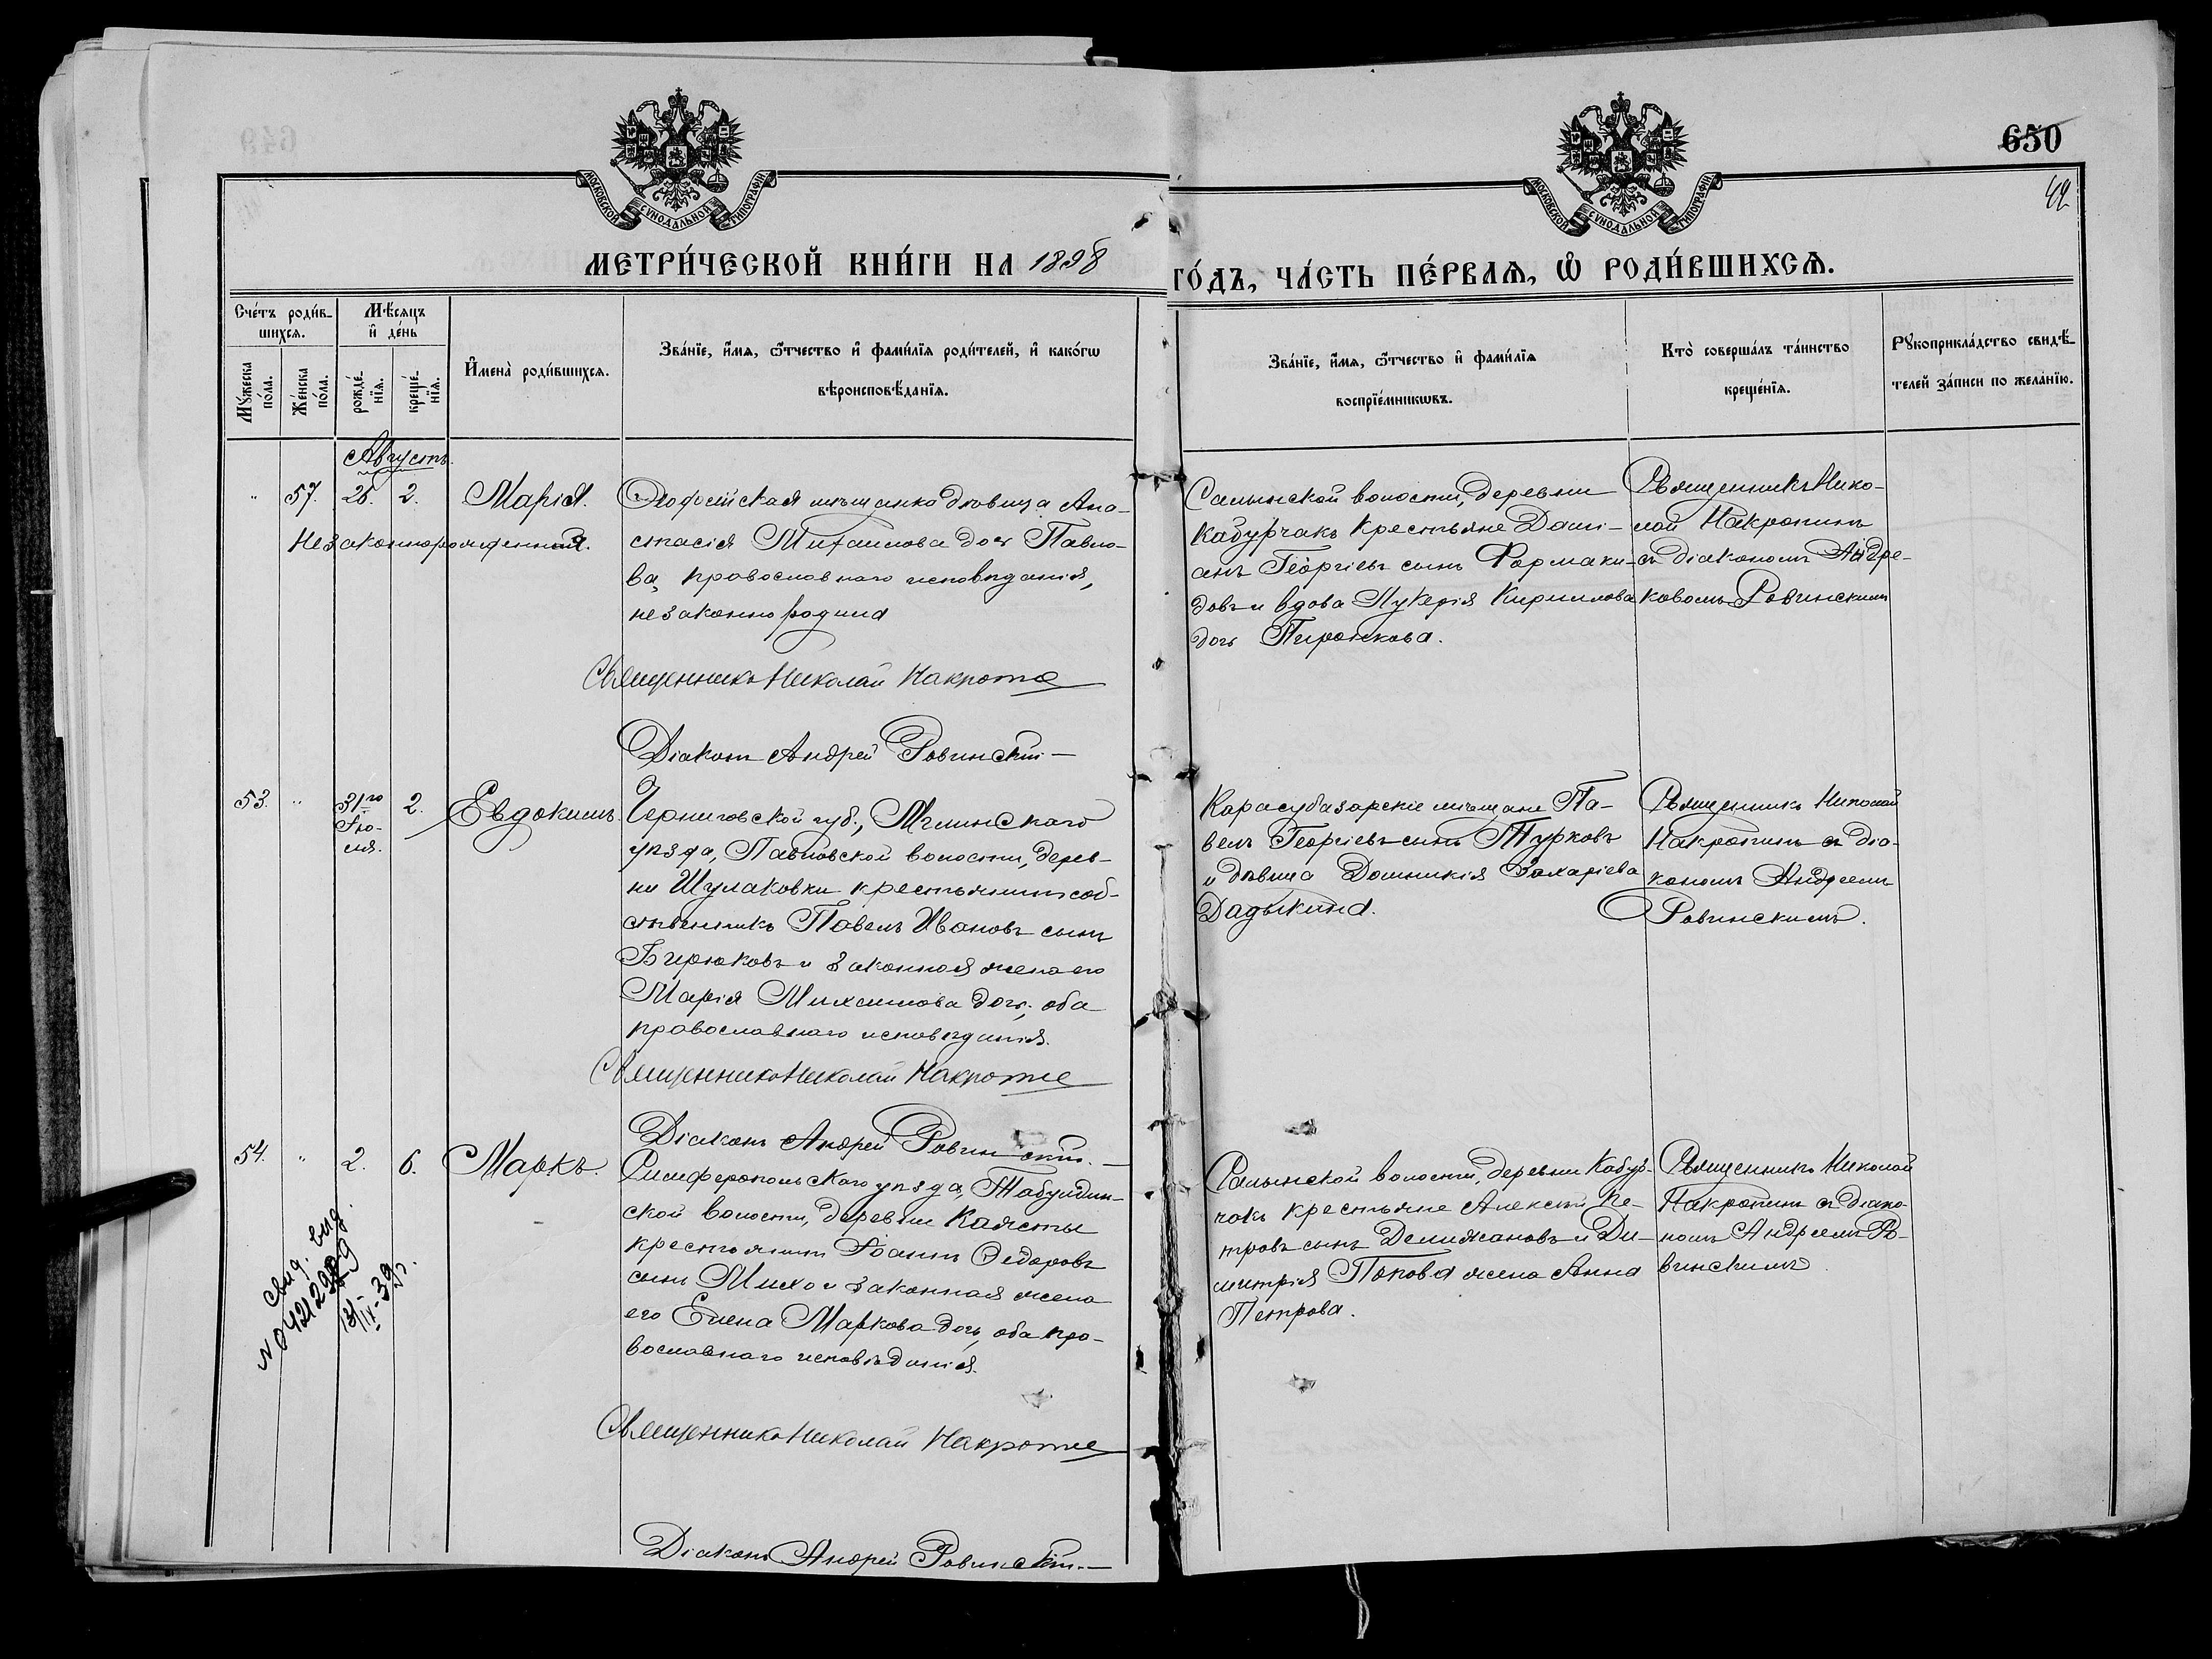 650
42
МОСКОВСКОЙ СѴНОДАЛЬНОЙ ТИПОГРАФІИ
МОСКОВСКОЙ СѴНОДАЛЬНОЙ ТИПОГРАФІИ
МЕТРИ́ЧЕСКОЙ КНИ́ГИ НА 1898 ГО́ДЪ, ЧА́СТЬ ПЕ́РВАѦ, Ѡ҆ РОДИ́ВШИХСѦ.
Сче́тъ роди́в-
шихсѧ.
Мꙋ́жеска по́ла.
Же́нска по́ла.
Мѣ́сѧцъ
и҆ де́нь
рожде́-
нїѧ.
креще́-
нїѧ.
И҆мена̀ роди́вшихсѧ.
Зва́нїе, и҆́мѧ, ѻ҆́тчество и҆ фами́лїѧ роди́телей, и҆ како́гѡ
вѣроисповѣ́данїѧ.
Зва́нїе, и҆́мѧ, ѻ҆́тчество и҆ фами́лїѧ
воспрїе́мникѡвъ.
Кто̀ соверша́лъ та́инство
креще́нїѧ.
Рꙋкоприкла́дство свидѣ́-
телей за́писи по жела́нїю.
Августъ.
" 57. 25. 2. Марія.
Незаконнорожденная.
Ѳеодосійская мѣщанка дѣвица Ана-
стасія Михаилова дочь Павло-
ва, православнаго исповѣданія,
незаконно родила
Священникъ Николай Накропин
Діаконъ Андрей Ровинскій
Салынской волости, деревни
Кабурчакъ крестьяне Дамі-
анъ Георгіевъ сынъ Фармаки-
довъ и вдова Лукерія Кириллова
дочь Пиронкова.
Священникъ Нико-
лай Накропинъ
съ діакономъ Андре-
Ровинскимъ
53. " 31го Ію-
ля. 2. Евдокимъ.
Черниговской губ., Мглинскаго
уѣзда, Павловской волости, дерев-
ни Шулаковки крестьянинъ соб-
ственникъ Павелъ Ивановъ сынъ
Бирюковъ и законная жена его
Марія Михаилова дочь, оба
православнаго исповѣданія.
Священникъ Николай Накропин
Діаконъ Андрей Ровинскій.
Карасубазарскіе мѣщане Па-
велъ Георгіевъ сынъ Турковъ
и дѣвица Домникія Захаріева
Дадыкина.
Священникъ Николай
Накропинъ съ діа-
кономъ Андреемъ
Ровинскимъ.
54. " 2. 6. Маркъ.
Симферопольскаго уѣзда, Табулдин-
ской волости, деревни Каясты
крестьянинъ Іоаннъ Ѳедоровъ
сынъ Михо и законная жена
его Елена Маркова дочь, оба пра-
вославнаго исповѣданія.
Священникъ Николай Накропин
Діаконъ Андрей Ровинскій.
Салынской волости, деревни Кабур-
чакъ крестьяне Алексѣй Пе-
тровъ сынъ Делижановъ и Ди-
митрія Попова жена Анна
Петрова.
Священникъ Николай
Накропинъ съ діако-
номъ Андреемъ Ро-
винскимъ.
свид. выд.
13/IV-39г.